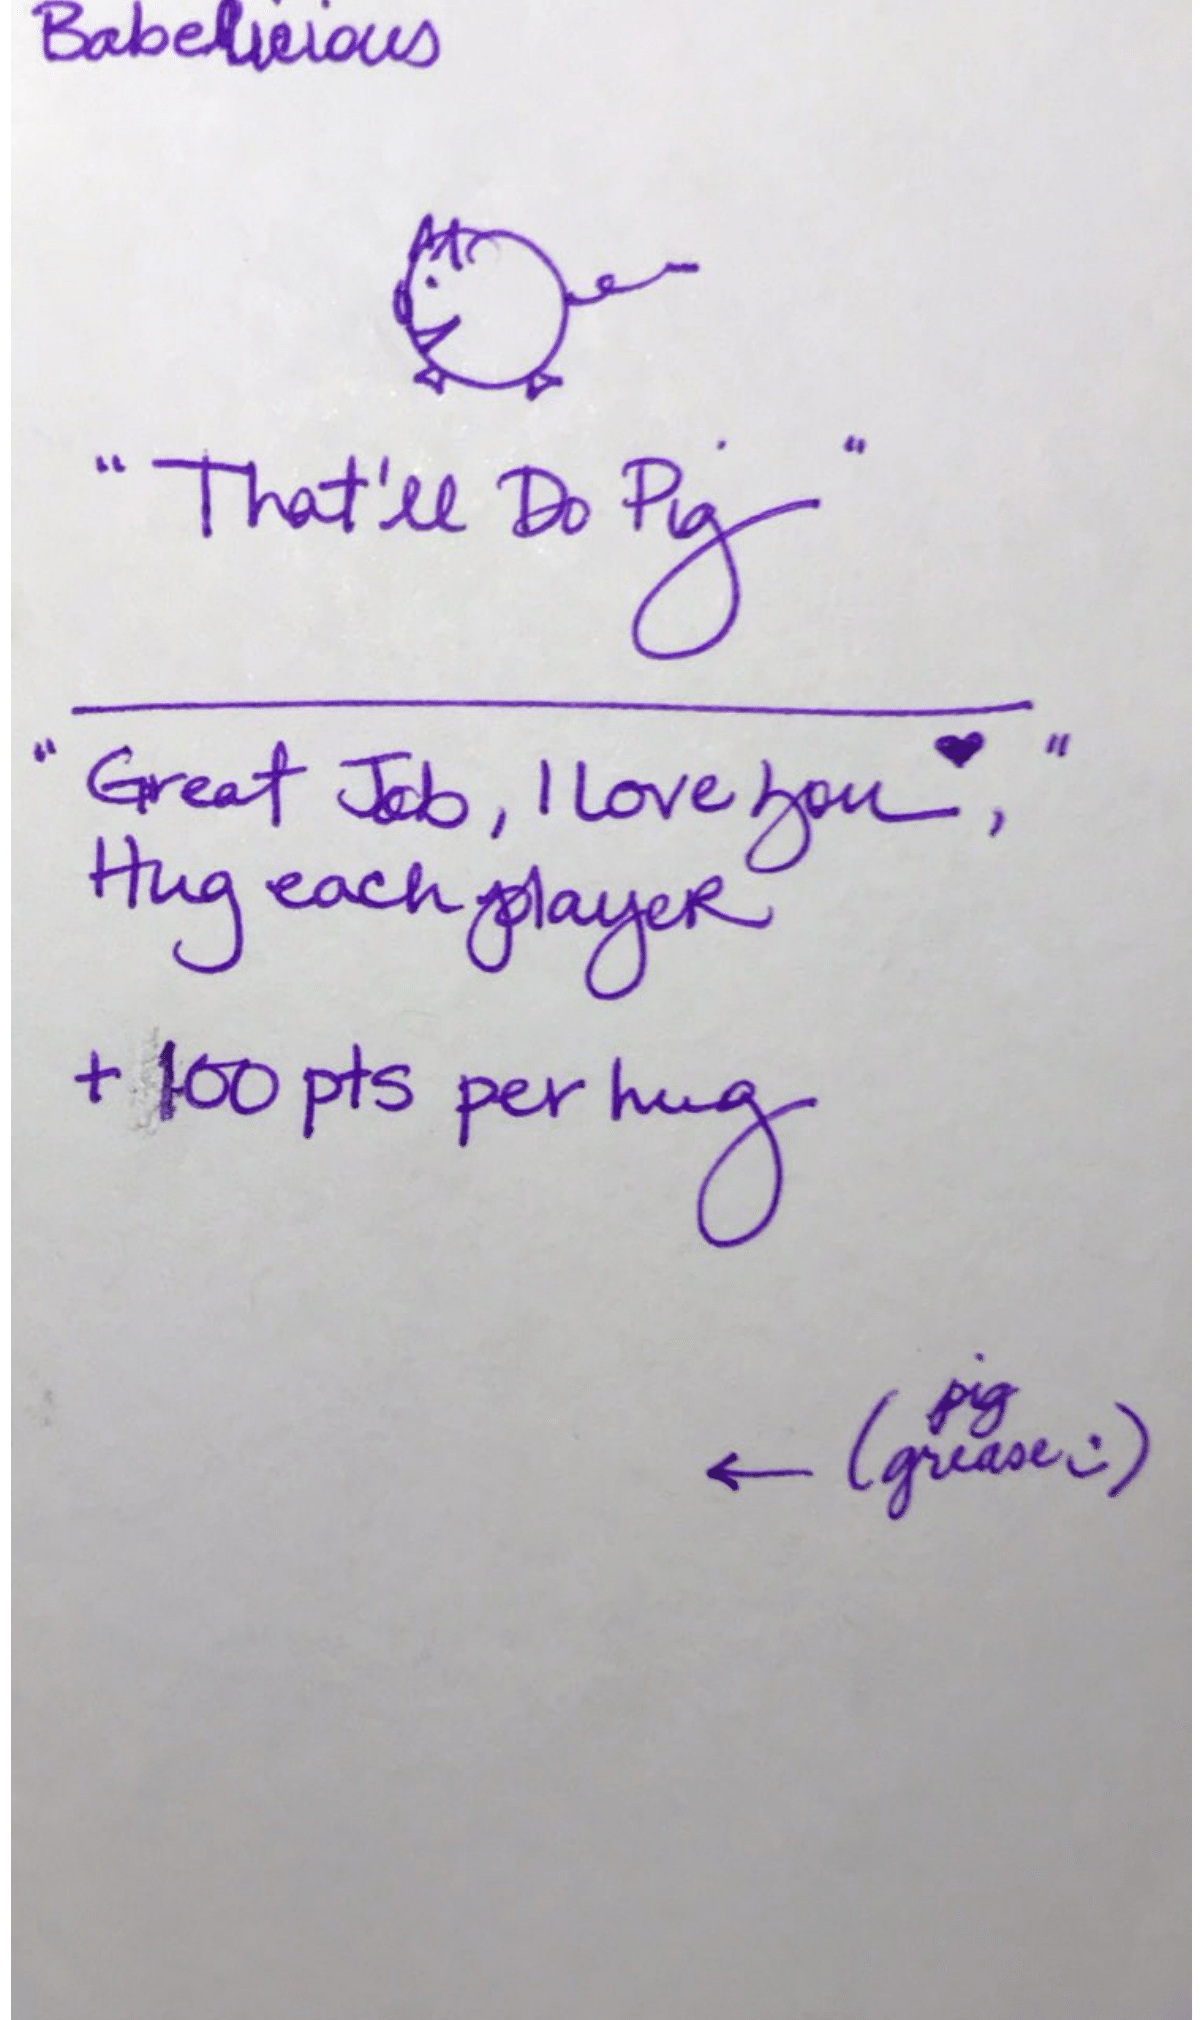 Babelicious
"That'll Do Pig"
"Great Job, I love you ♥,"
Hug each player
+ 100 pts per hug
← (pig
grease :))